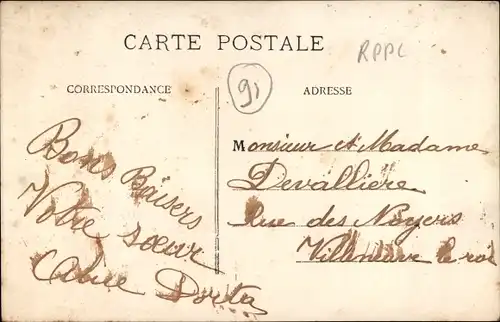 CARTE POSTALE
RPPC
91
CORRESPONDANCE
ADRESSE
Bons Baisers
Votre sœur
Monsieur et Madame
Devallière
Rue des Noyers
Villeneuve le roi